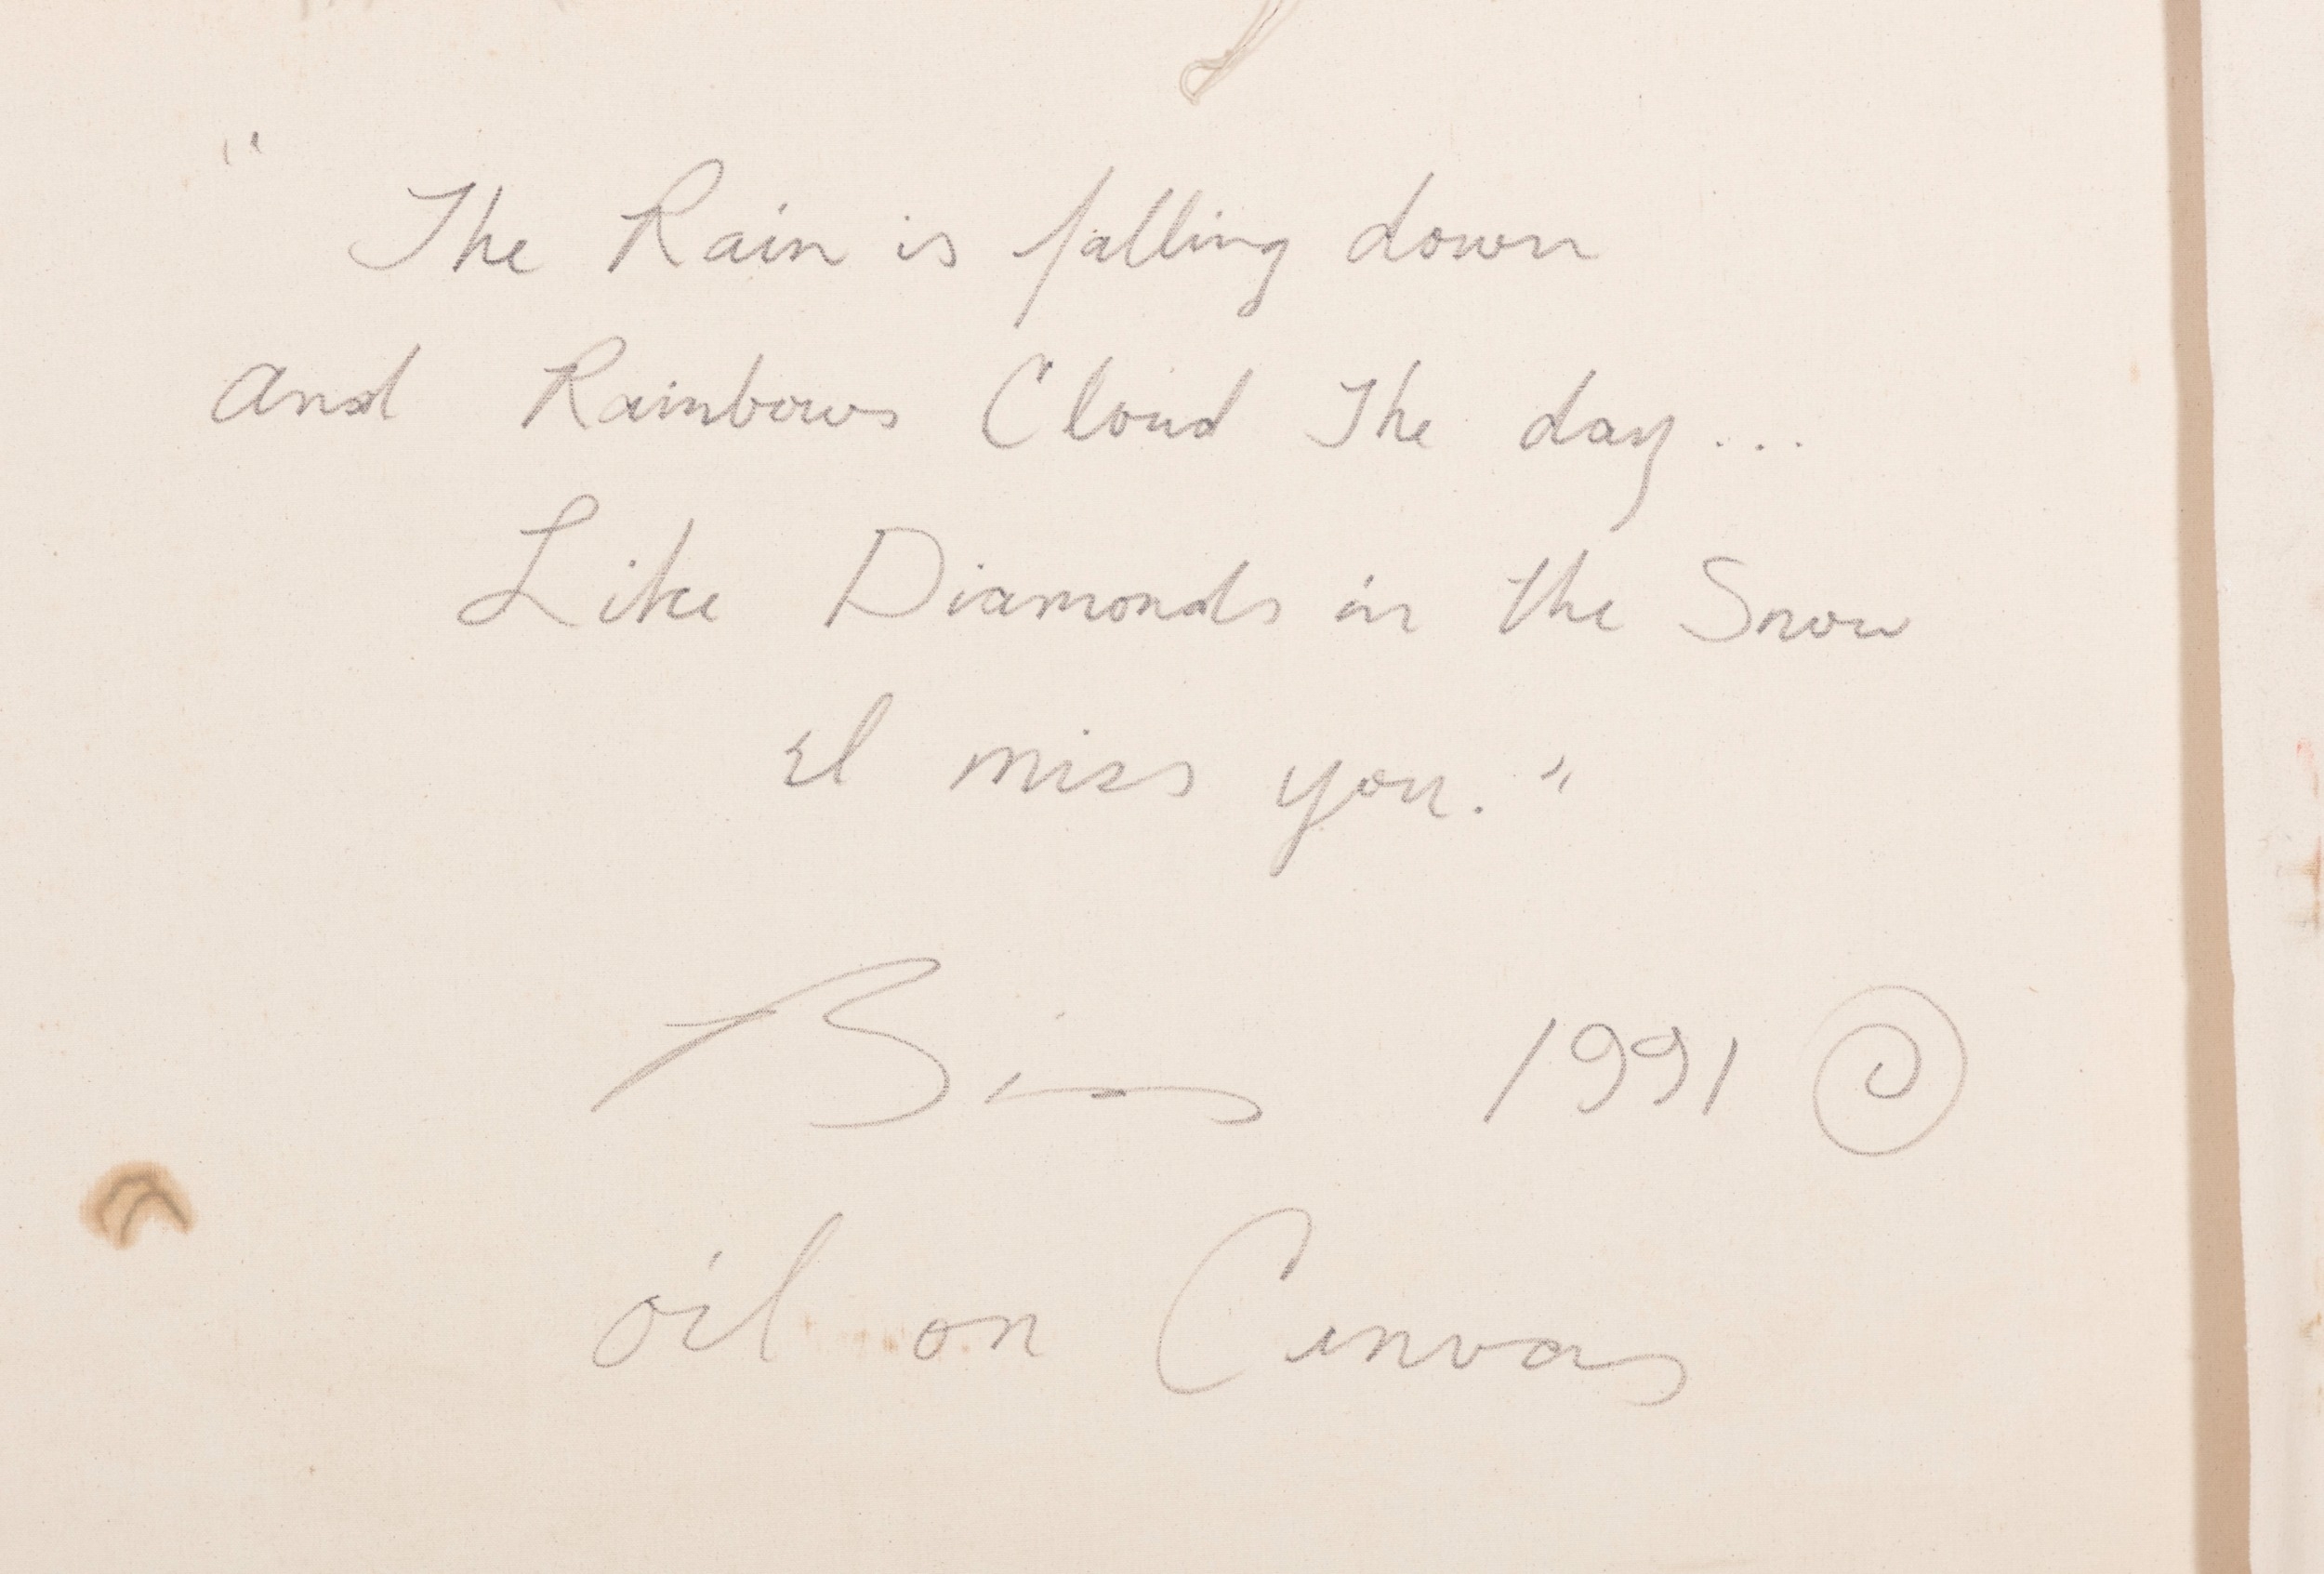 "The Rain is falling down
and Rainbows Cloud The day...
Like Diamonds in the Snow
I miss you."
1991
oil on Canvas